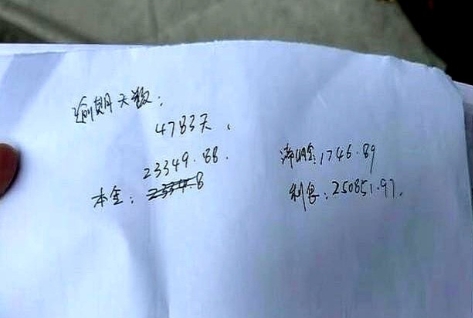 逾期天数：
4783天.
23349.88.
本金：
滞纳金:1746.89
利息:250851.97.